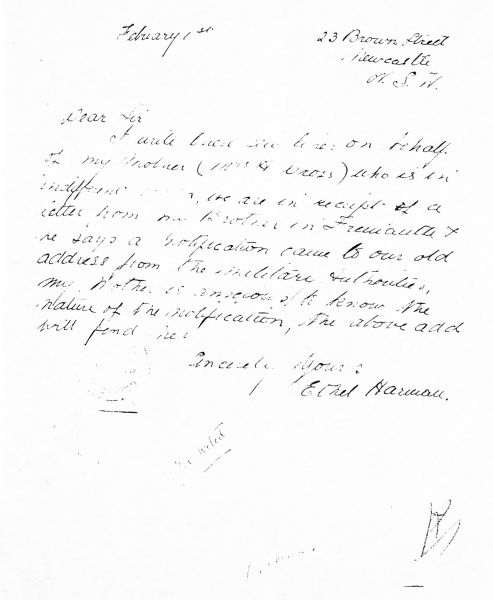 February 1st
23 Brown Street
Newcastle
N. S. W.
Dear Sir
I write these few lines on behalf
of my Mother (Mrs Cross) who is in
indifferent we are in receipt of a
letter from my Brother in Fremantle &
he says a Notification came to our old
address from the Military Authorities,
my Mother is anxious to know the
Nature of the Notification, the above add
will find her
Sincerely Yours
Ethel Harman.